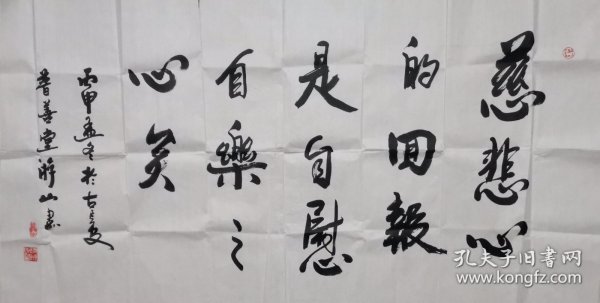 慈悲心
的回報
是自慰
自樂之
心矣
丙申孟冬於古長安
普善堂 山書
孔夫子旧书网
www.kongfz.com